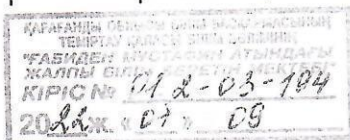 ҚАРАҒАНДЫ ОБЛЫСЫ БІЛІМ БАСҚАРМАСЫНЫҢ
ТЕМІРТАУ ҚАЛАСЫ БІЛІМ БӨЛІМІНІҢ
"ҒАБИДЕН МҰСТАФИН АТЫНДАҒЫ
ЖАЛПЫ БІЛІМ БЕРЕТІН МЕКТЕБІ"
КІРІС № 01 2-03-194
2022ж. «01» 09